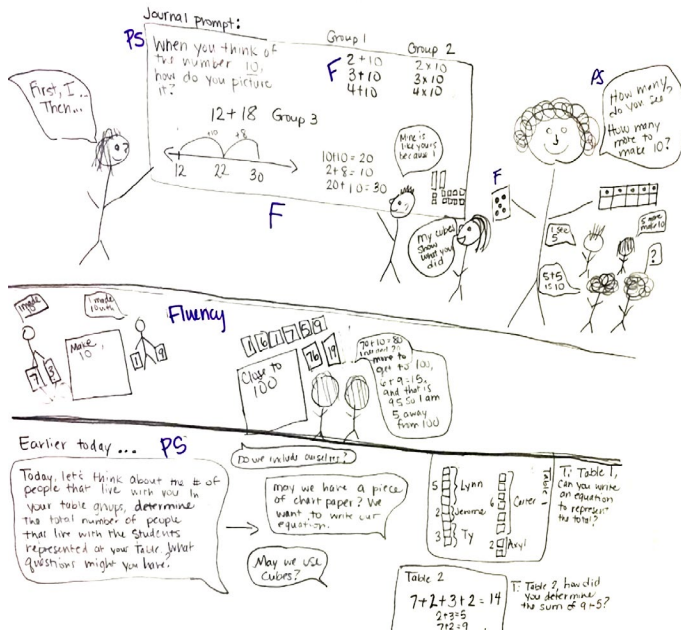 Journal prompt:
PS
When you think of
the number 10,
how do you picture
it?
Group 1
F
2+10
3+10
4+10
Group 2
2x10
3x10
4x10
12+18 Group 3
+10 +8
12 22 30
10+10=20
2+8=10
20+10=30
F
First, I...
Then...
Mine is
like yours
because I
My cubes
show
what you
did
F
PS
How many
do you see?
How many
more to
make 10?
I see
5
5 more
make 10
5+5
is 10
?
Fluency
I made
10
I made
10 with
Make
10
7 3
1 9
1 6 1 7 5 9
76 19
Close to
100
70+10=80
more to
get to 100,
6+9=15,
and that is
95 so I am
5 away
from 100
Earlier today... PS
Today, let's think about the # of
people that live with you in
your table groups, determine
the total number of people
that live with the students
represented at your Table. What
questions might you have?
Do we include ourselves?
May we have a piece
of chart paper? We
want to write our
equation.
May we use
cubes?
5 Lynn
2 Jerome
3 Ty
6 Carter
2 Axyl
Table 1
T: Table 1,
Can you write
an equation
to represent
the total?
Table 2
7+2+3+2=14
2+3=5
7+2=9
T: Table 2, how did
you determine
the sum of 9+5?